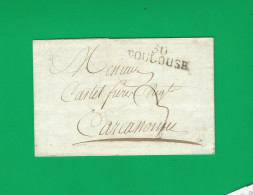 30
TOULOUSE
Monsieur
Castel frère Negt
Carcassonne